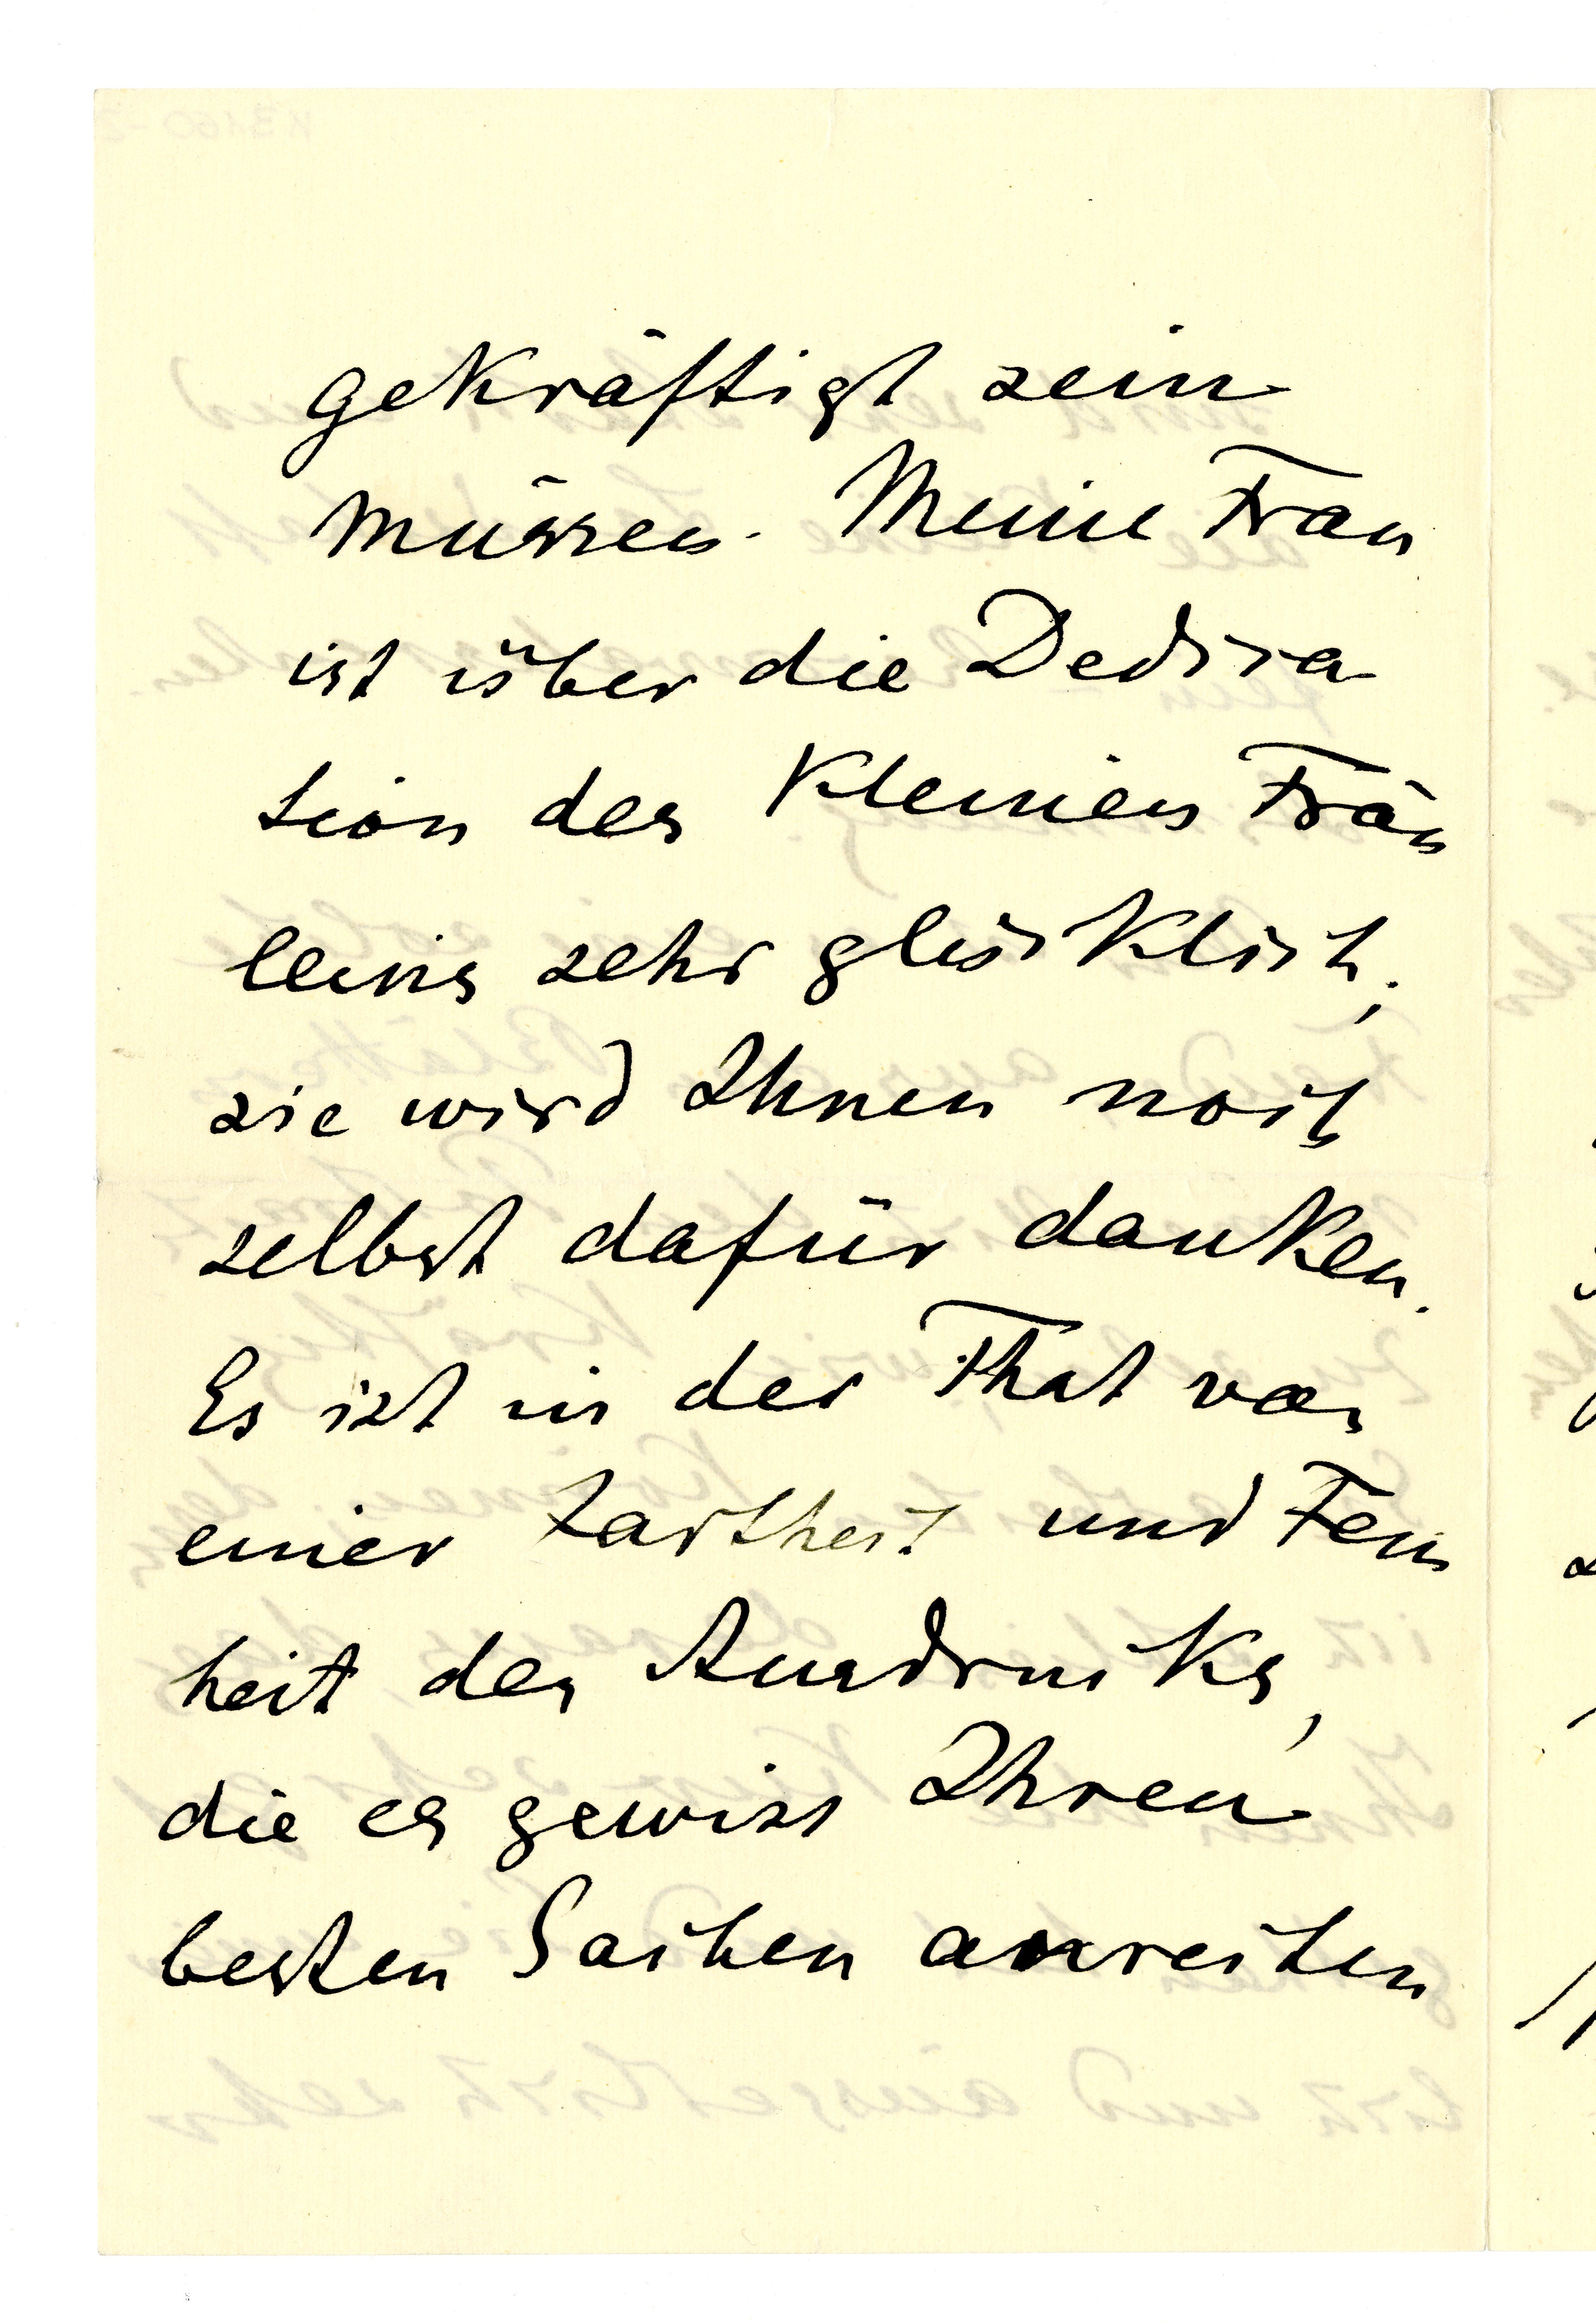 gekräftigt sein
müssen. Meine Frau
ist über die Dedica
tion des kleinen Fräu
leins sehr glücklich;
sie wird Ihnen noch
selbst dafür danken.
Es ist in der That von
einer Zartheit und Fein
heit des Ausdrucks,
die es gewiss Ihren
besten Sachen anreihen